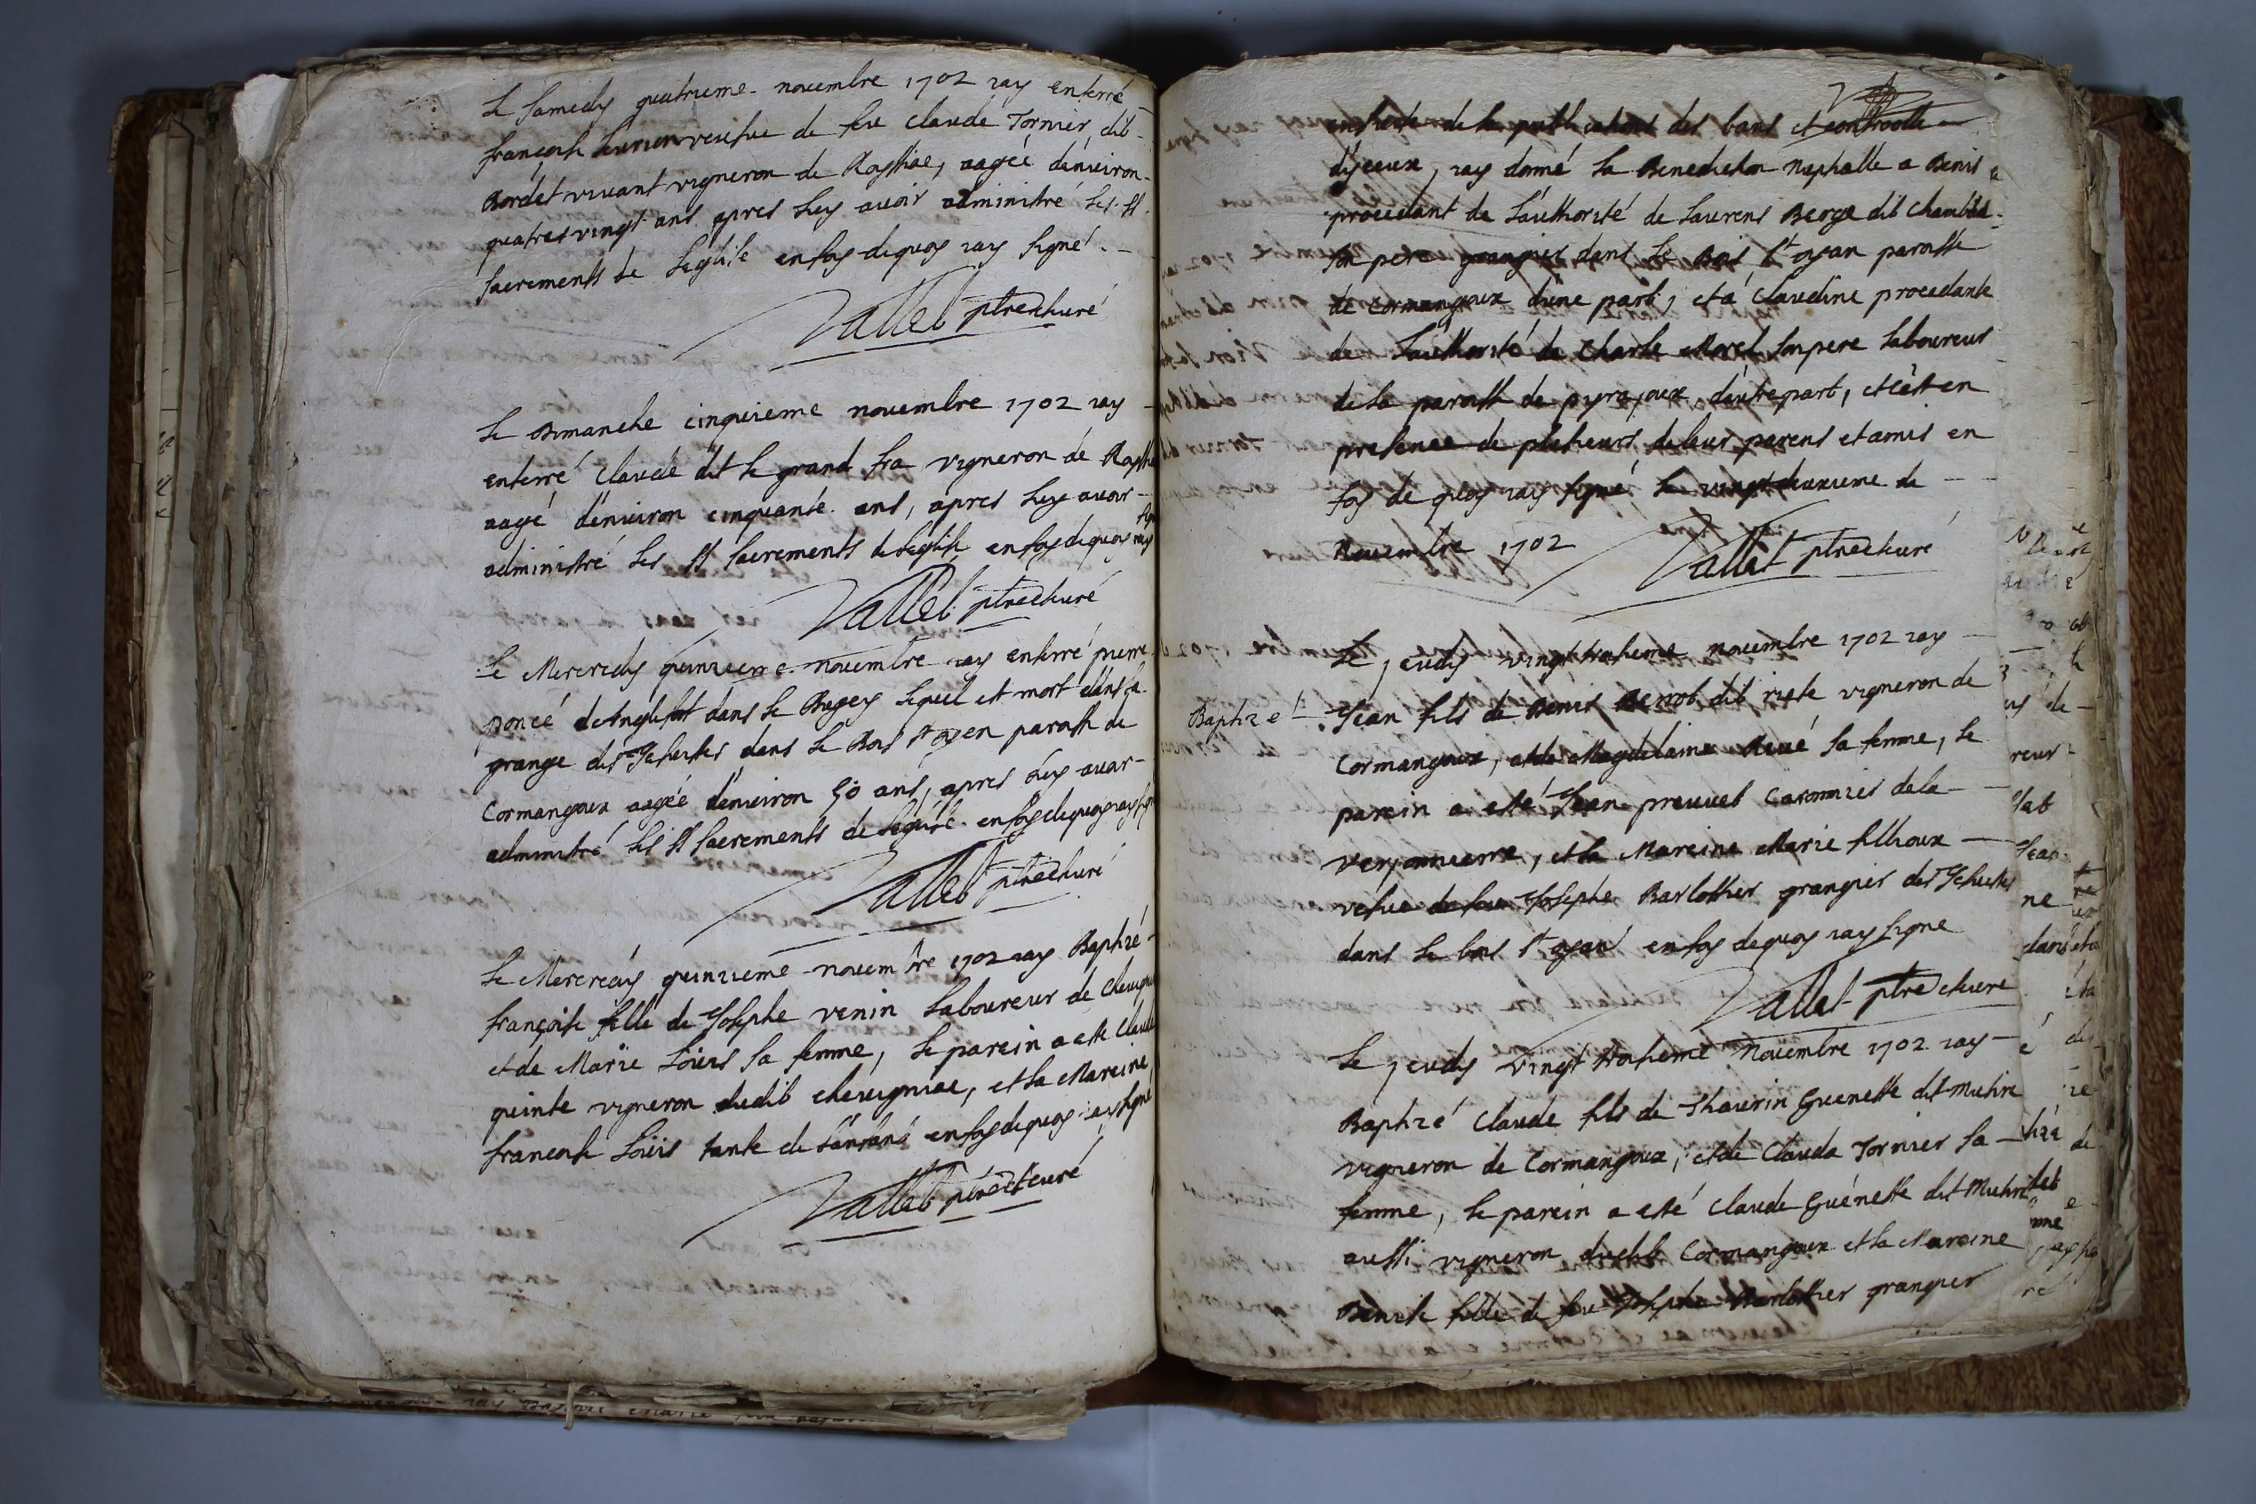 Le samedy quatrieme novembre 1702 iay enterré
françoise vesfue de feu claude Tornier dit
Bordet vivant vigneron de Rossiae, aagée d'environ
quatres vingt ans apres luy avoir administré les sts
sacrements de leglise en foy de quoy iay signé
Vallet ptre & curé
Le Dimanche cinquieme novembre 1702 iay
enterré Claude dit le grand fra vigneron de
aagé d'environ cinquante ans, apres luy avoir
administré les sts sacrements de leglise en foy de quoy iay
Vallet ptre & curé
Le Mercredy quinzieme novembre iay enterré pierre
poncé de Anglefort dans le Bugey lequel est mort dans la
grange des Jesuistes dans le Bois st oyen paroisse de
Cormangoux aagée d'environ 50 ans, apres luy avoir
administré les sts sacrements de leglise en foy de quoy iay signé
Vallet ptre & curé
Le Mercredy quinzieme novembre 1702 iay Baptizé
françoise fille de Josephe venin Laboureur de
et de Marie Loüis sa femme, le parein a esté Claude
quinte vigneron dudit chevigniae, et la Mareine
françoise Loüis tante de en foy de quoy iay signé
Vallet ptre & curé
en suite de la publications des bans et controolle
d'iceux, iay donné la Benediction nuptialle a Denis
procedant de l'authorité de Laurens Berge dit
son pere grangier dans le Bois st oyan paroisse
de cormangoux d'une part, et a Claudine procedante
de l'authorité de Charle Morel son pere laboureur
de la paroisse de pyrajoux d'autre part, et c'est en
presence de plusieurs de leurs parens et amis en
foy de quoy iay signé le vingt deuxieme de
Novembre 1702
Vallet ptre & curé
Le jeudy vingt troisieme novembre 1702 iay
Baptizé Jean fils de Denis Benoit dit vigneron de
Cormangoux, et de Magdelaine sa femme, le
parein a esté Jean preuvet de la
verjonnierre, et la Mareine Marie fillioux
vefue de feu Josephe Barlothier grangier des Jesuistes
dans le bois st oyan en foy de quoy iay signe
Vallet ptre & curé
Le jeudy vingt troisieme novembre 1702 iay
Baptizé Claude fils de Thaurin Guenette dit
vigneron de Cormangoux, et de Clauda Tornier sa
femme, le parein a esté Claude Guénette dit
aussi vigneron dudit Cormangoux et la Mareine
Benoite fille de feu Josephe Barlothier grangier